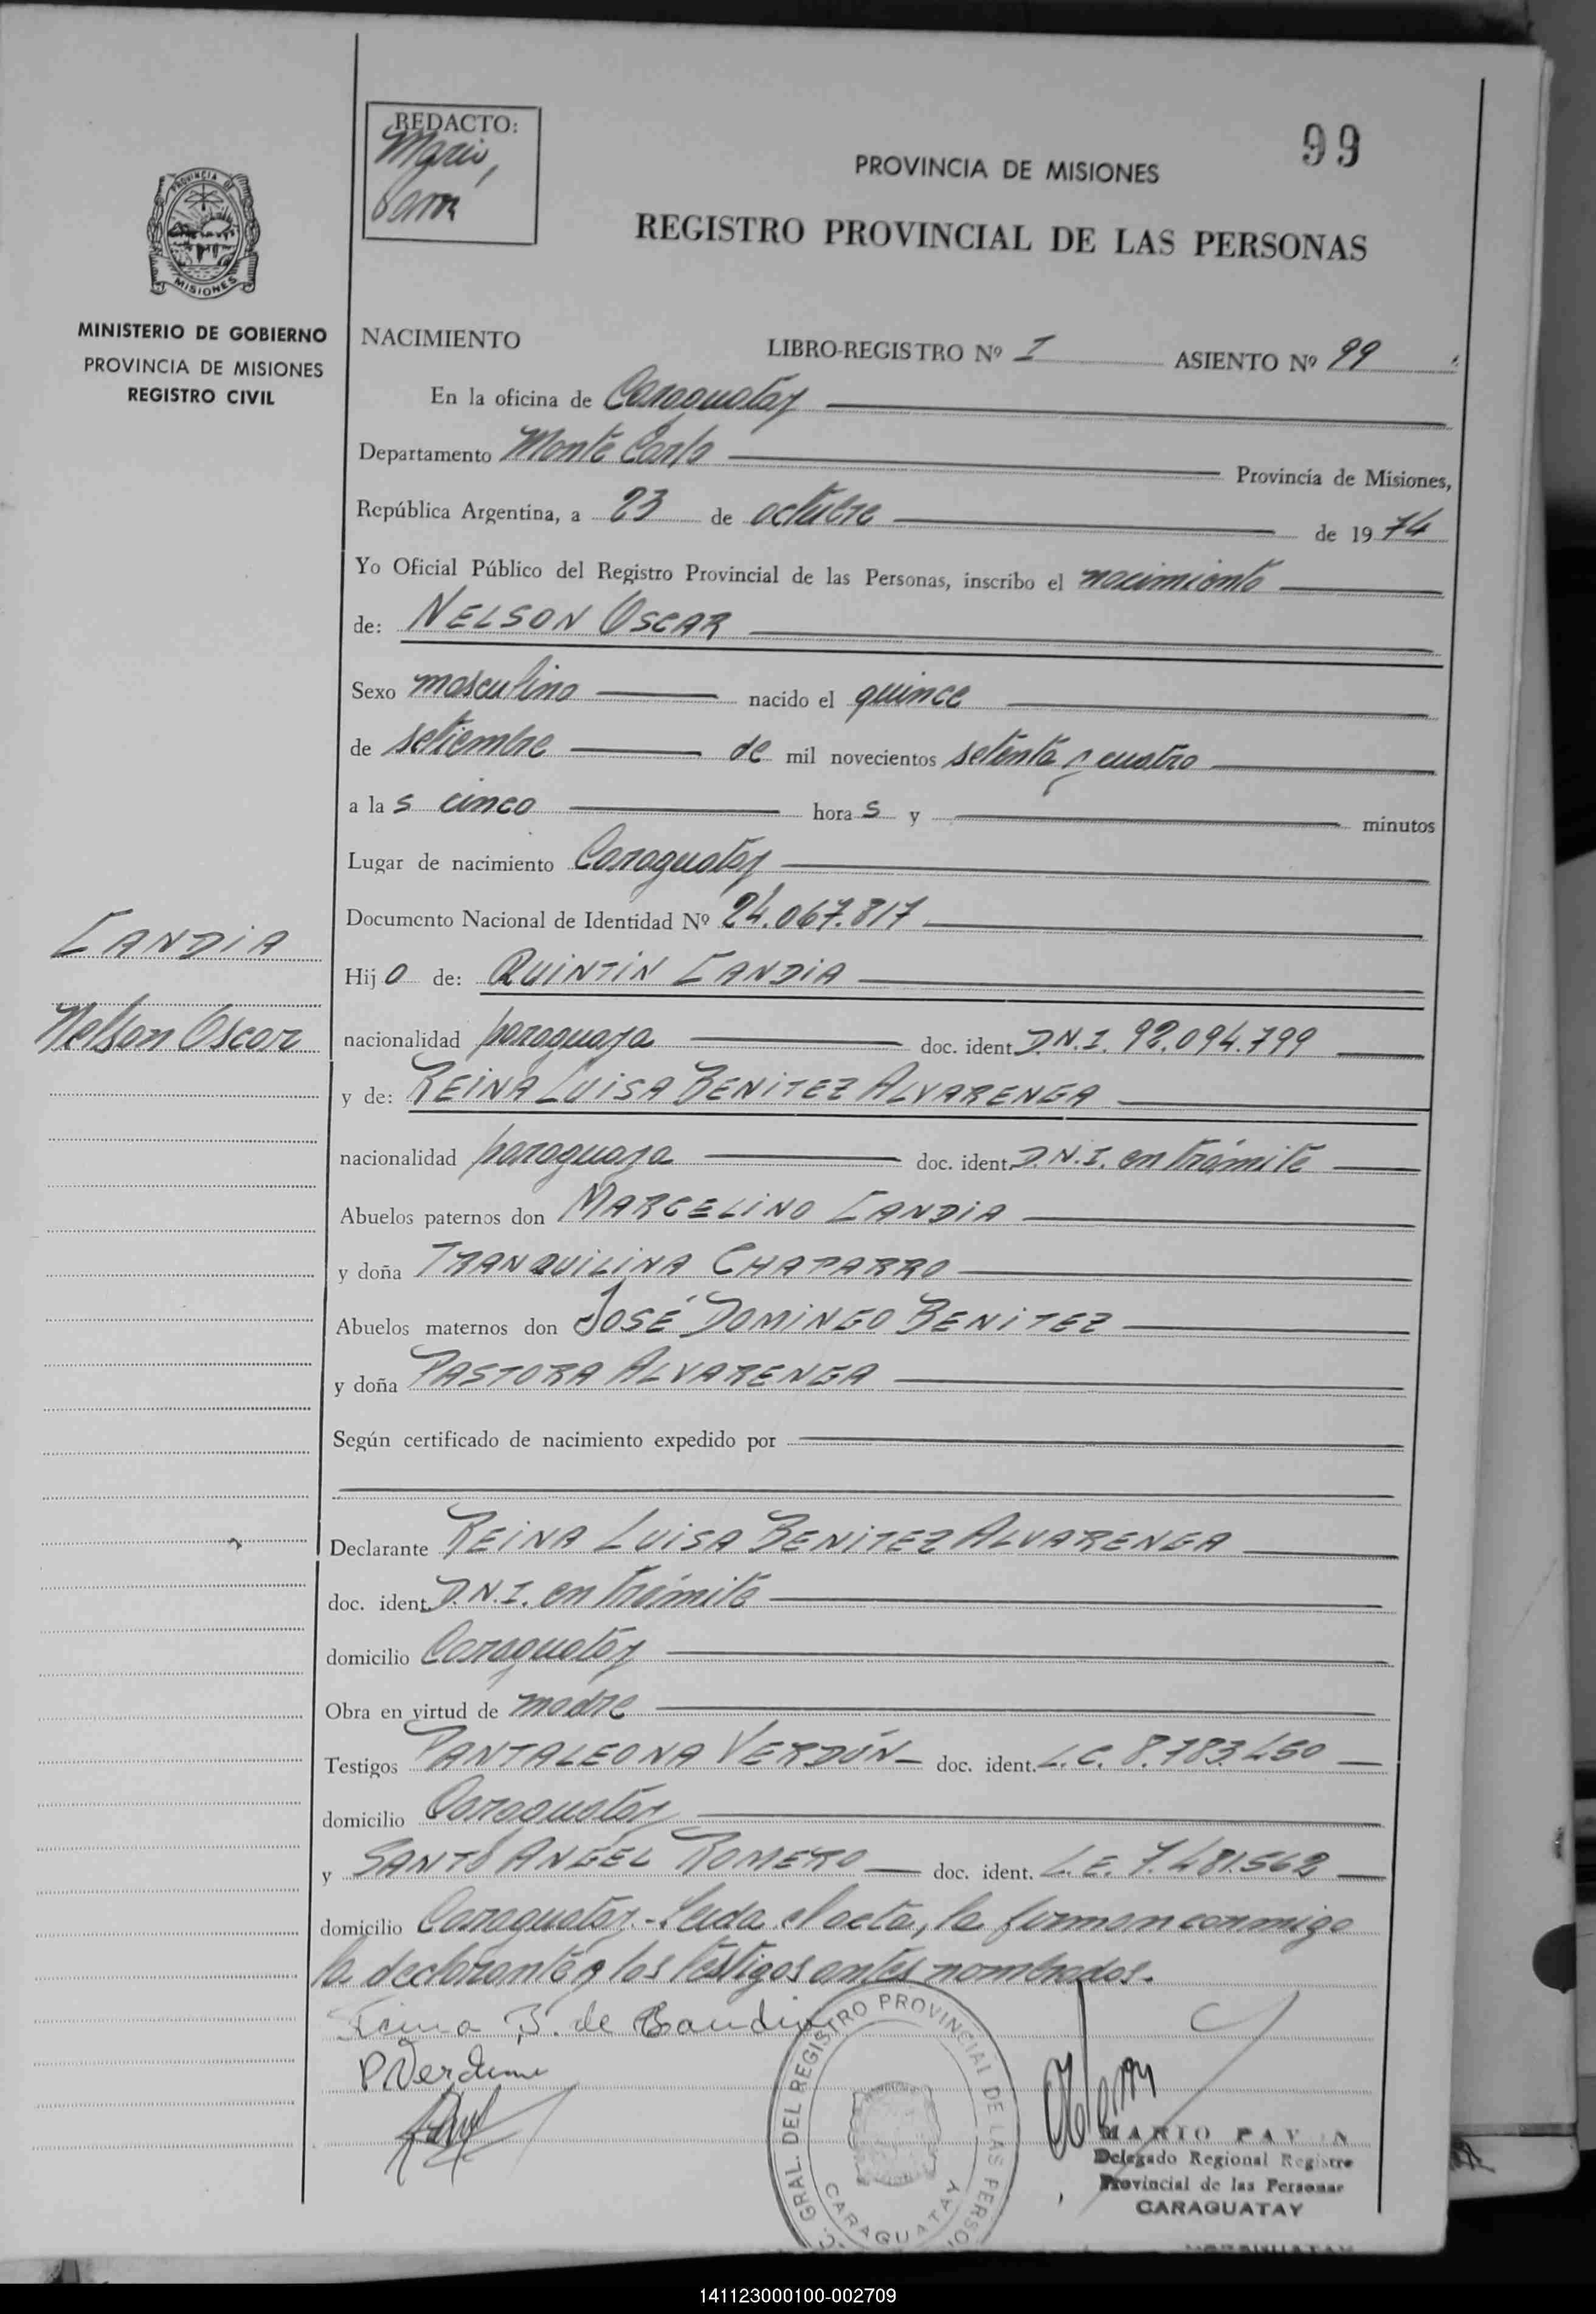 REDACTO:
Mario
99
PROVINCIA DE MISIONES
REGISTRO PROVINCIAL DE LAS PERSONAS
PROVINCIA DE
MISIONES
MINISTERIO DE GOBIERNO
PROVINCIA DE MISIONES
REGISTRO CIVIL
NACIMIENTO LIBRO-REGISTRO Nº I ASIENTO Nº 99
En la oficina de Caraguatay
Departamento Monte Carlo Provincia de Misiones,
República Argentina, a 23 de octubre de 1974
Yo Oficial Público del Registro Provincial de las Personas, inscribo el nacimiento
de: NELSON OSCAR
Sexo masculino nacido el quince
de setiembre de mil novecientos setenta y cuatro
a las cinco horas y minutos
Lugar de nacimiento Caraguatay
Documento Nacional de Identidad Nº 24.067.817
CANDIA
Nelson Oscar
Hijo de: QUINTIN CANDIA
nacionalidad paraguaya doc. ident. D.N.I. 92.094.799
y de: REINA LUISA BENITEZ ALVARENGA
nacionalidad paraguaya doc. ident. D.N.I. en trámite
Abuelos paternos don MARCELINO CANDIA
y doña TRANQUILINA CHAPARRO
Abuelos maternos don JOSÉ DOMINGO BENITEZ
y doña PASTORA ALVARENGA
Según certificado de nacimiento expedido por
Declarante REINA LUISA BENITEZ ALVARENGA
doc. ident. D.N.I. en trámite
domicilio Caraguatay
Obra en virtud de madre
Testigos PANTALEONA VERDÚN doc. ident. L.C. 8.783.450
domicilio Caraguatay
y SANTO ANGEL ROMERO doc. ident. L.E. 7.481.562
domicilio Caraguatay.- Leída el acta, la firman conmigo
la declarante y los testigos antes nombrados.
B. de Candia
P Verdun
GRAL. DEL REGISTRO PROVINCIAL DE LAS PERSO
CARAGUATAY
MARIO PAV N
Delegado Regional Registro
Provincial de las Personas
CARAGUATAY
141123000100-002709